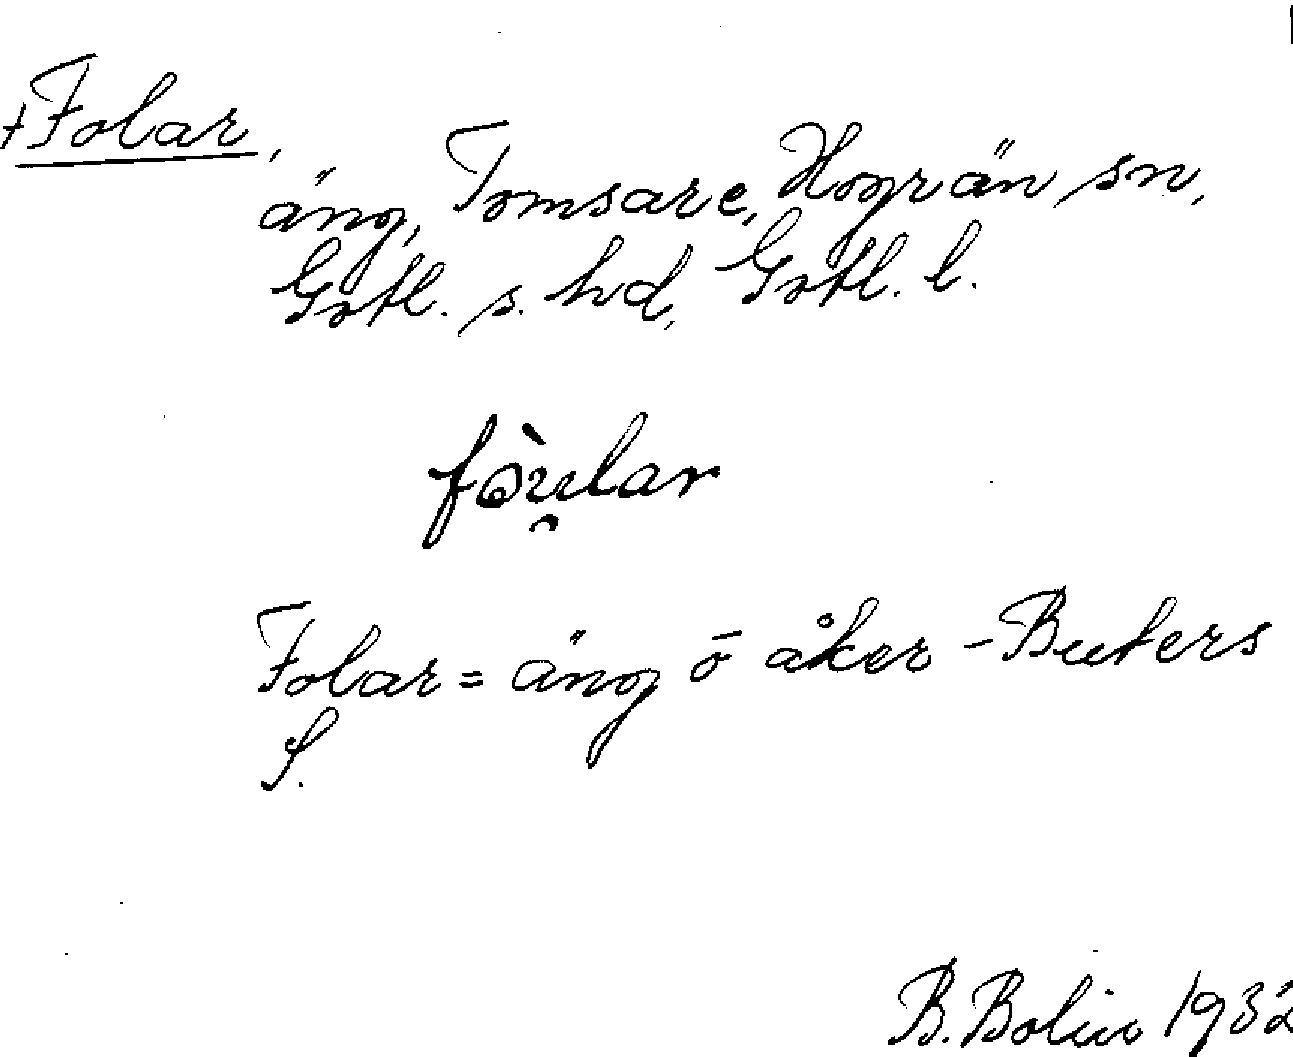 +Folar,
äng, Tomsare, Hogrän sn,
Gotl. s. hd, Gotl. l.
fòu̯lar
Folar = äng o åker - Buters
S.
B. Bolin 1932